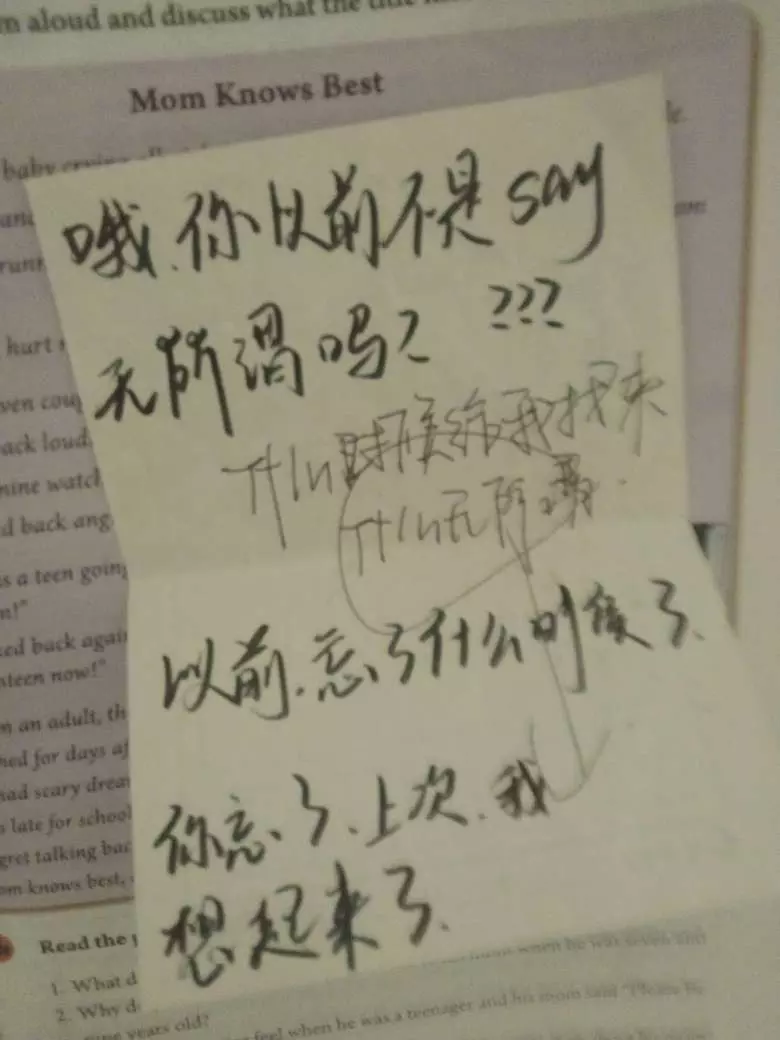 m aloud and discuss what the title
Mom Knows Best
baby crying
哦.你以前不是say
无所谓吗? ???
什么时候给我找来
什么无所谓.
以前.忘了什么时候了.
你忘了.上次.我
想起来了.
hurt
ven coup
ack loud
mine watch
d back ang
s a teen going
m!"
ked back again
nteen now!"
m an adult, th
hed for days af
had scary drea
s late for school
gret talking bac
om knows best,
Read the p
1. What d
when he was seven and
2. Why d
nine years old?
feel when he was a teenager and his mom said "Please be